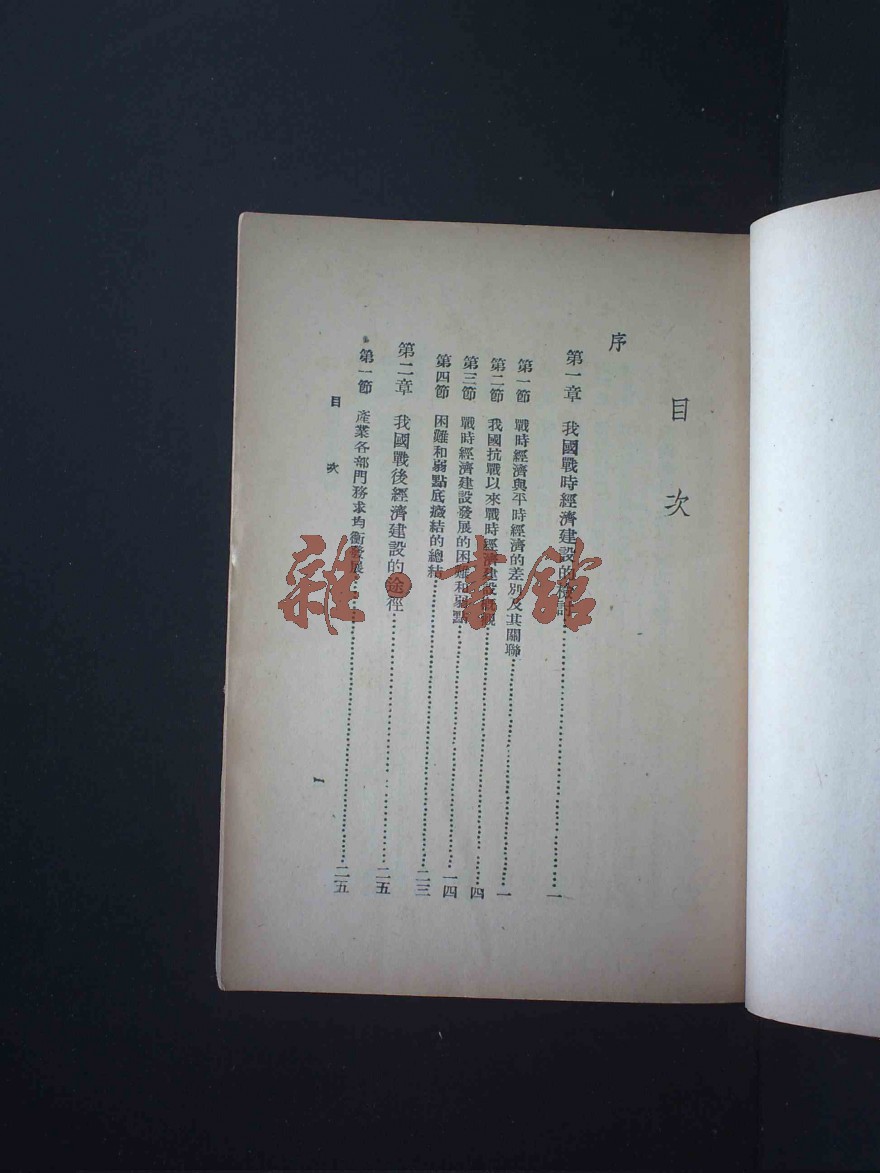 目次
序
第一章 我國戰時經濟建設的檢討……一
第一節 戰時經濟與平時經濟的差別及其關聯……一
第二節 我國抗戰以來戰時經濟建設概觀……四
第三節 戰時經濟建設發展的困難和弱點……一四
第四節 困難和弱點底癥結的總結……二三
第二章 我國戰後經濟建設的途徑……二五
第一節 產業各部門務求均衡發展……二五
目次
1
雜·書館